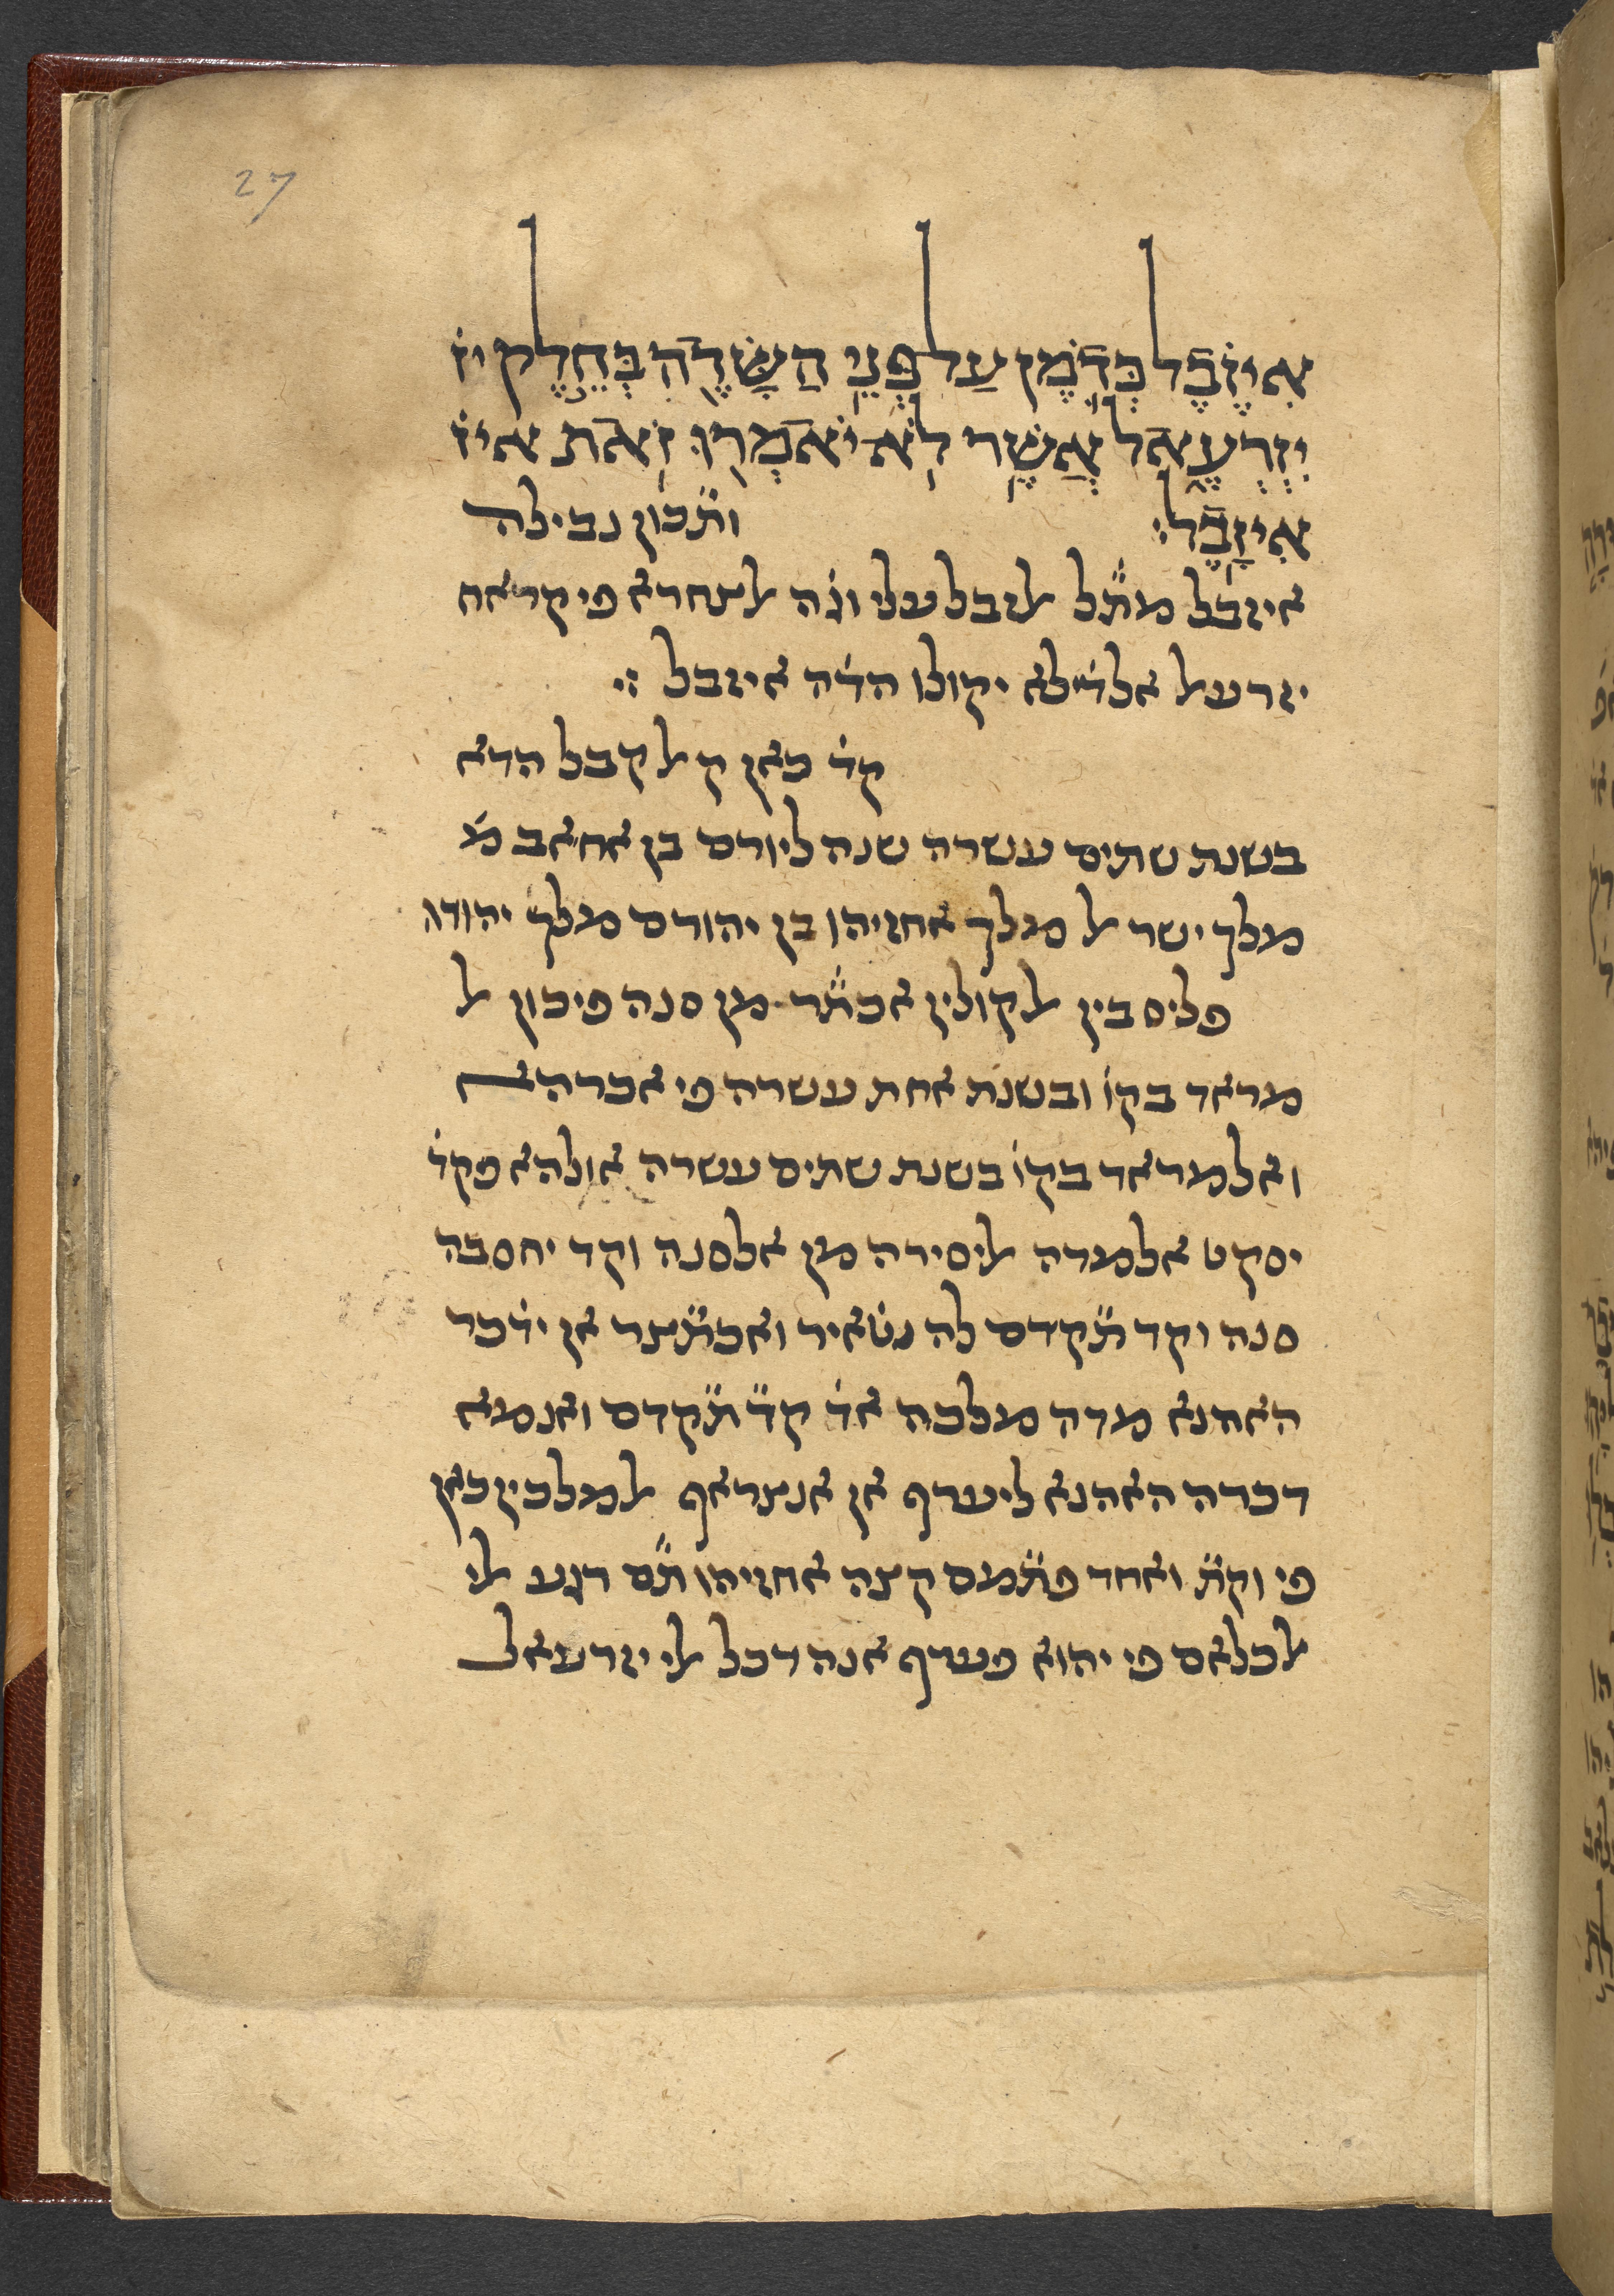 27
אִיזֶבֶל כְּדֹמֶן עַל פְּנֵי הַשָּׂדֶה בְּחֵלֶק יז
יִזְרְעֶאל אֲשֶׁר לֹא יֹאמְרוּ זֹאת איז
אִיזָבֶל׃ ותׄכון נבילה
איזבל מתׄל לזבל עלי וגׄה לצחרא פי קראח
יזרעל אלדׄי לא יקולו הדׄה איזבל ׃׳
קדׄ כאן ק לקבל הדא
בשנת שתים עשרה שנה ליורם בן אחאב מׄ
מלך ישר ל מלך אחזיהו בן יהורם מלך יהודה
פליס בין לקולין אכתׄר מן סנה פיכון ל
מראד בקוׄ ובשנת אחת עשרה פי אכרהא
ואלמראד בקוׄ בשנת שתים עשרה אולהא פקדׄ
יסקט אלמדה ליסירה מן אלסנה וקד יחסבה
סנה וקד תׄקדם לה נטׄאיר ואכתׄצר אן ידׄכר
האהנא מדה מלכה אדׄ קדׄ תׄקדם ואנמא
דכרה האהנא ליערף אן אנצראף למלכין כאן
פי וקתׄ ואחד פתׄמם קצה אחזיהו תׄם רגׄע לי
לכלאם פי יהוא פערף אנה דכל לי יזרעאל